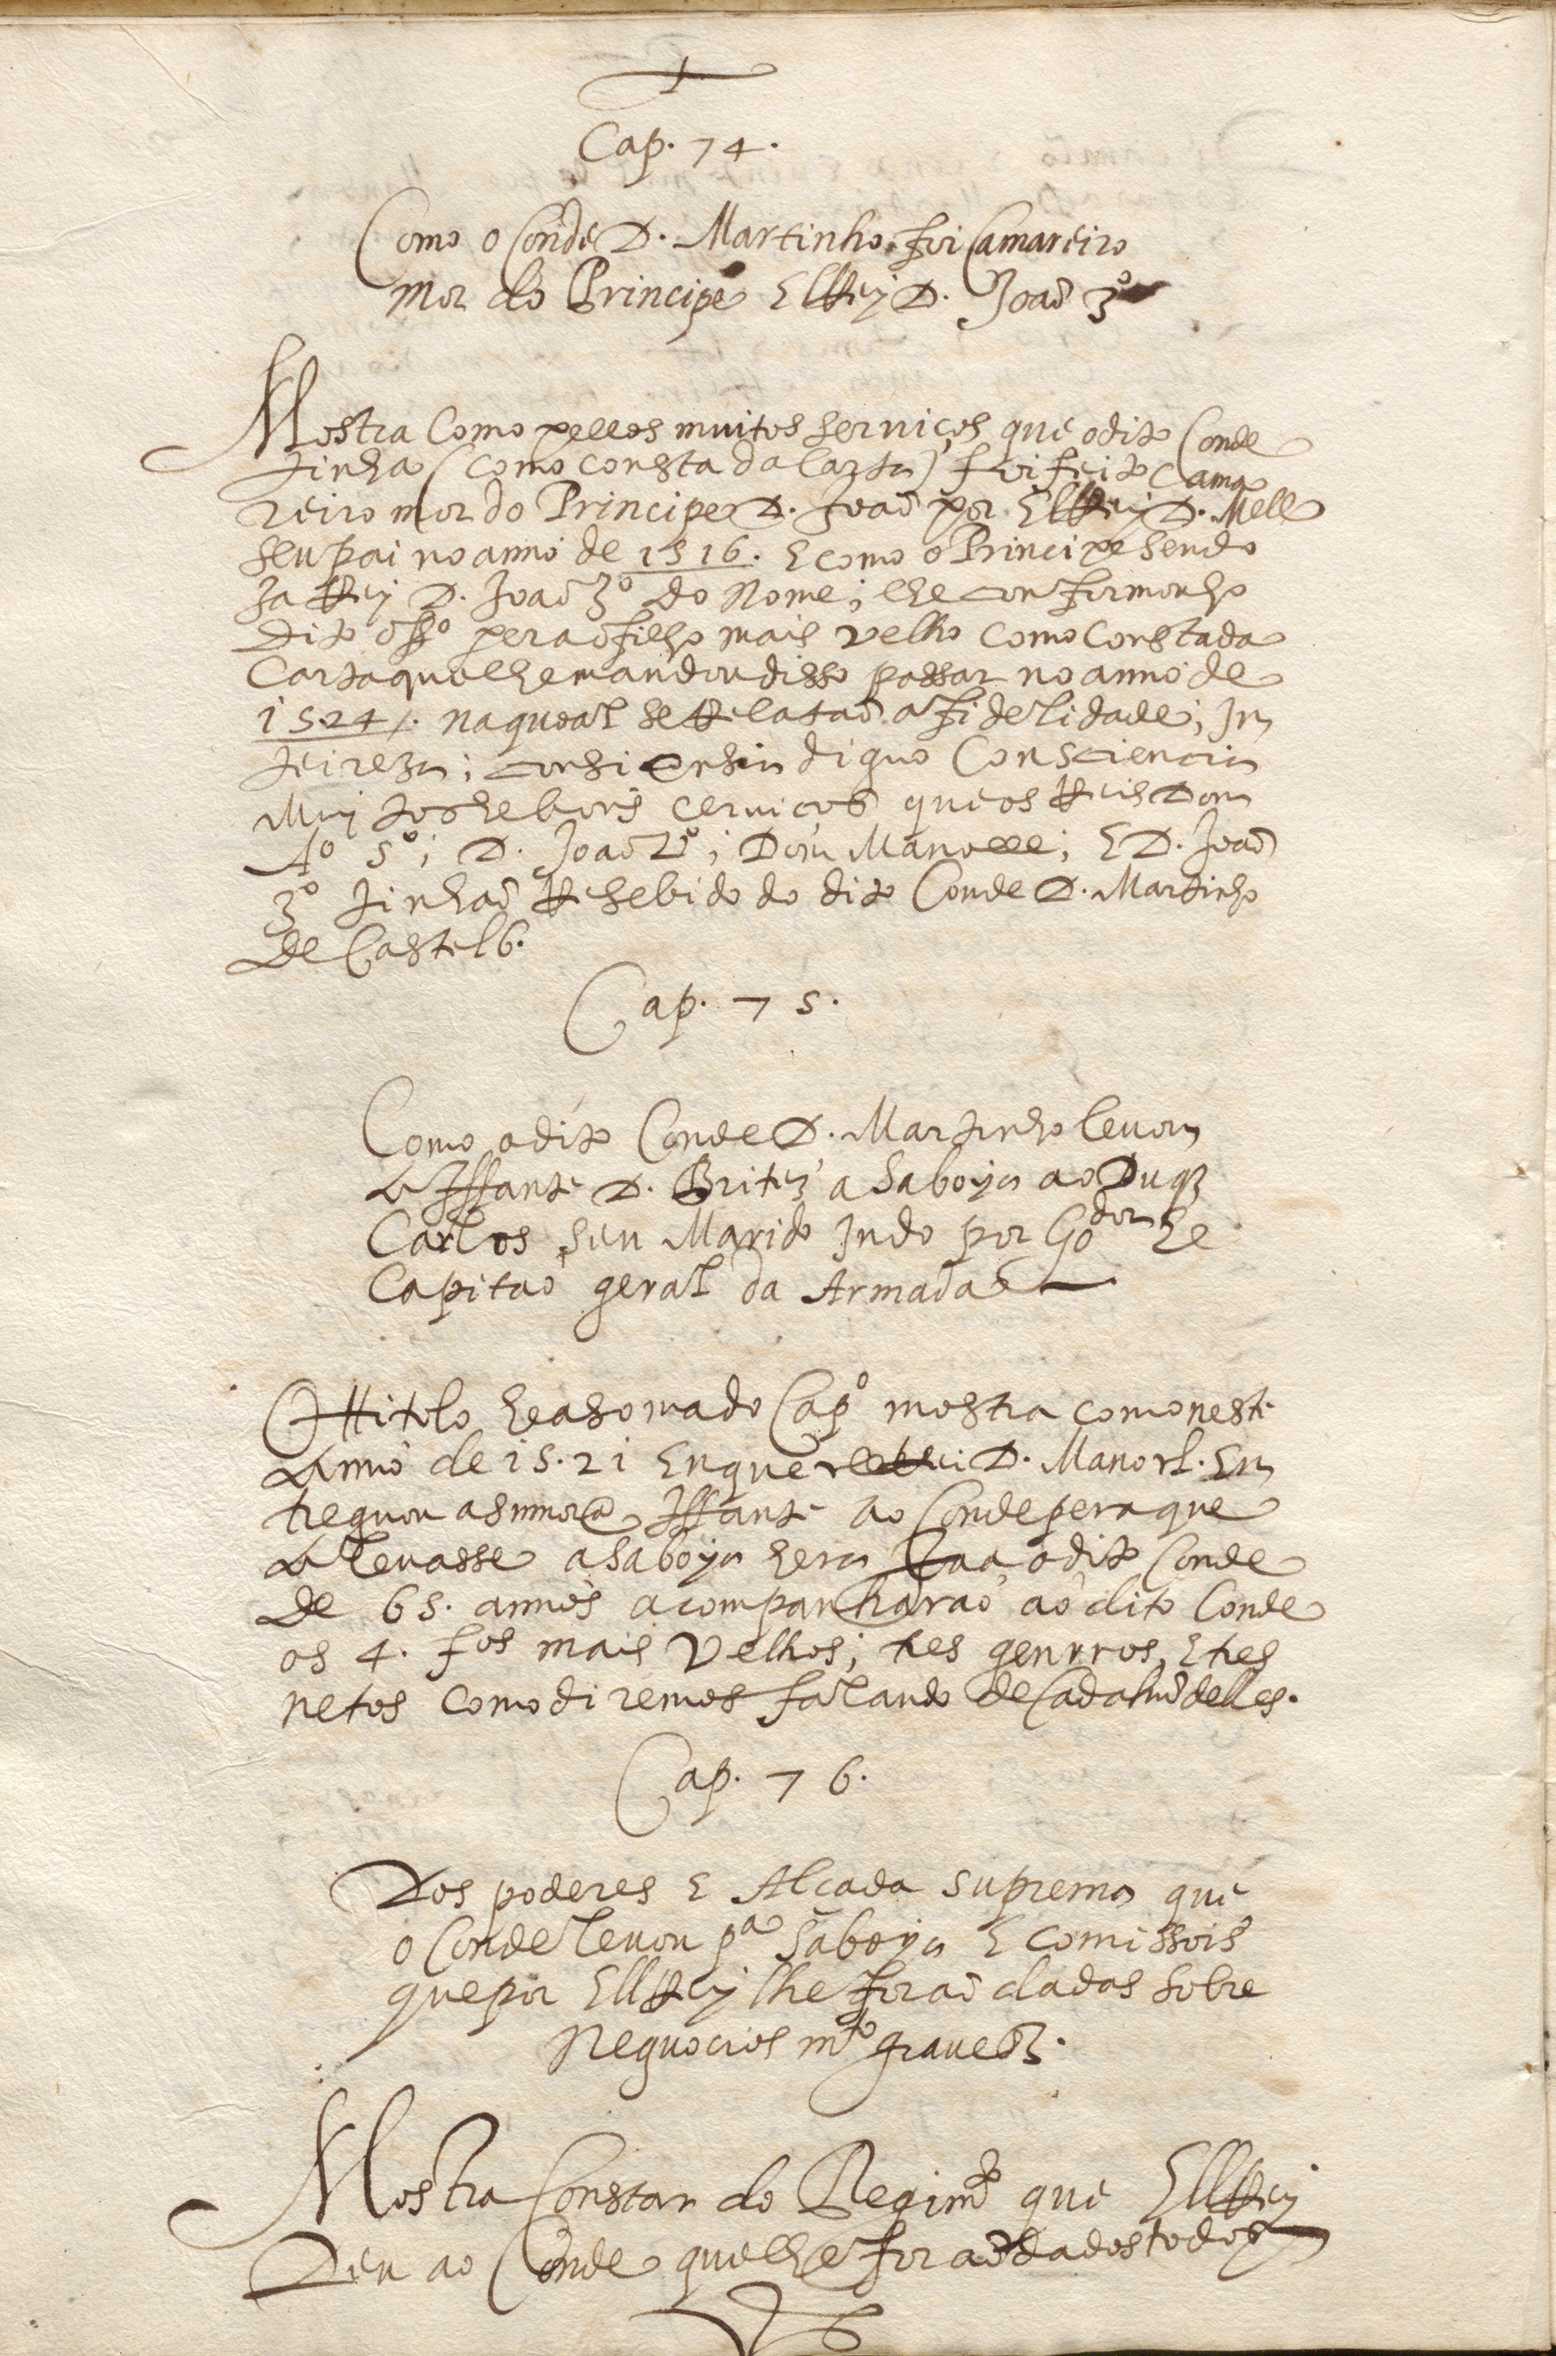 Cap. 74.
Como o Conde D. Martinho foi Camareiro
mor do Principe ElRey D. Joaõ 3º
Mostra Como pellos muitos serviços que o dito Conde
tinha (como consta da Carta) foi feito Cama
reiro mor do Principe D. Joaõ por ElRey D. Mell
seu pai no anno de 1516. E como o Principe sendo
Ja Rey D. Joaõ 3º do Nome; lhe confirmou ho
dito offº pera o filho mais velho como Consta da
Carta que lhe mandou disso passar no anno de
1524/. na quoal se Relataõ a fidelidade; In
teireza; digno Consciencia
Muj serviços que os Reis Dom
Aº 5º; D. Joaõ 2º; Dom Manoell; E D. Joaõ
3º tinhaõ Resebido do dito Conde D. Martinho
de Castelb.
Cap. 75.
Como o dito Conde D. Martinho levou
a Iffante D. Britez a Saboya ao Duqz
Carlos seu Marido Indo por Gºdor he
Capitaõ geral da Armada
O titolo he a soma do Capº mostra como neste
anno de 1521 En que elRei D. Manoel. En
tregou a Iffante ao Conde pera que
a levasse a Saboya hera Jaa o dito Conde
de 65. annos acompanharaõ ao dito Conde
os 4. fos mais Velhos; tres genrros, E tres
netos como diremos falando de Cada hũ delles.
Cap. 76.
Dos poderes E Alçada suprema que
o Conde levou pª Saboya E comissois
que por EllRey lhe foraõ dadas sobre
Neguocios mto graves.
Mostra Constar do Regimto que EllRey
Deu ao Conde que lhe foraõ dados todos